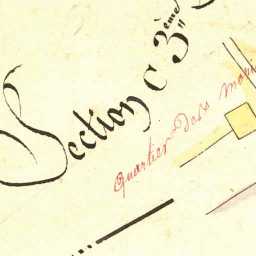 Section C 3ème
Quartier des